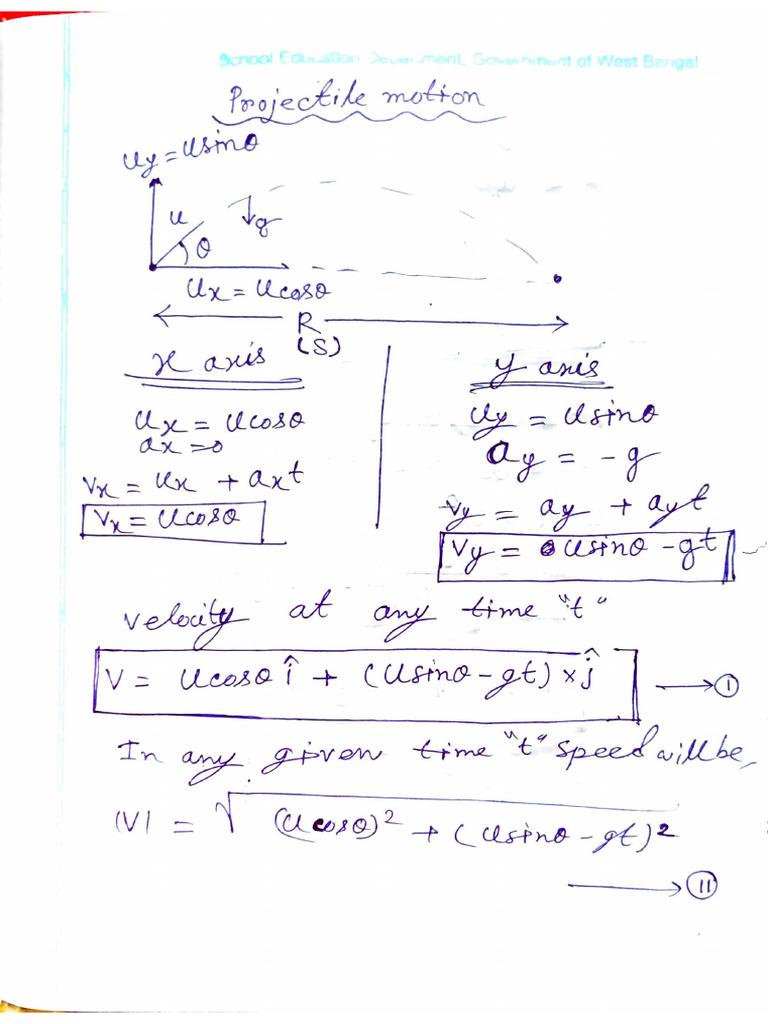 School Education Department, Government of West Bengal
Projectile motion
uy = usinθ
u
↓g
θ
ux = ucosθ
R
(S)
x axis
ux = ucosθ
ax = 0
vx = ux + axt
vx = ucosθ
y axis
uy = usinθ
ay = -g
vy = ay + ayt
vy = usinθ - gt
velocity at any time "t"
V = ucosθ î + (usinθ - gt) × ĵ → (I)
In any given time "t" speed will be,
|V| = √(ucosθ)² + (usinθ - gt)²
→ (II)